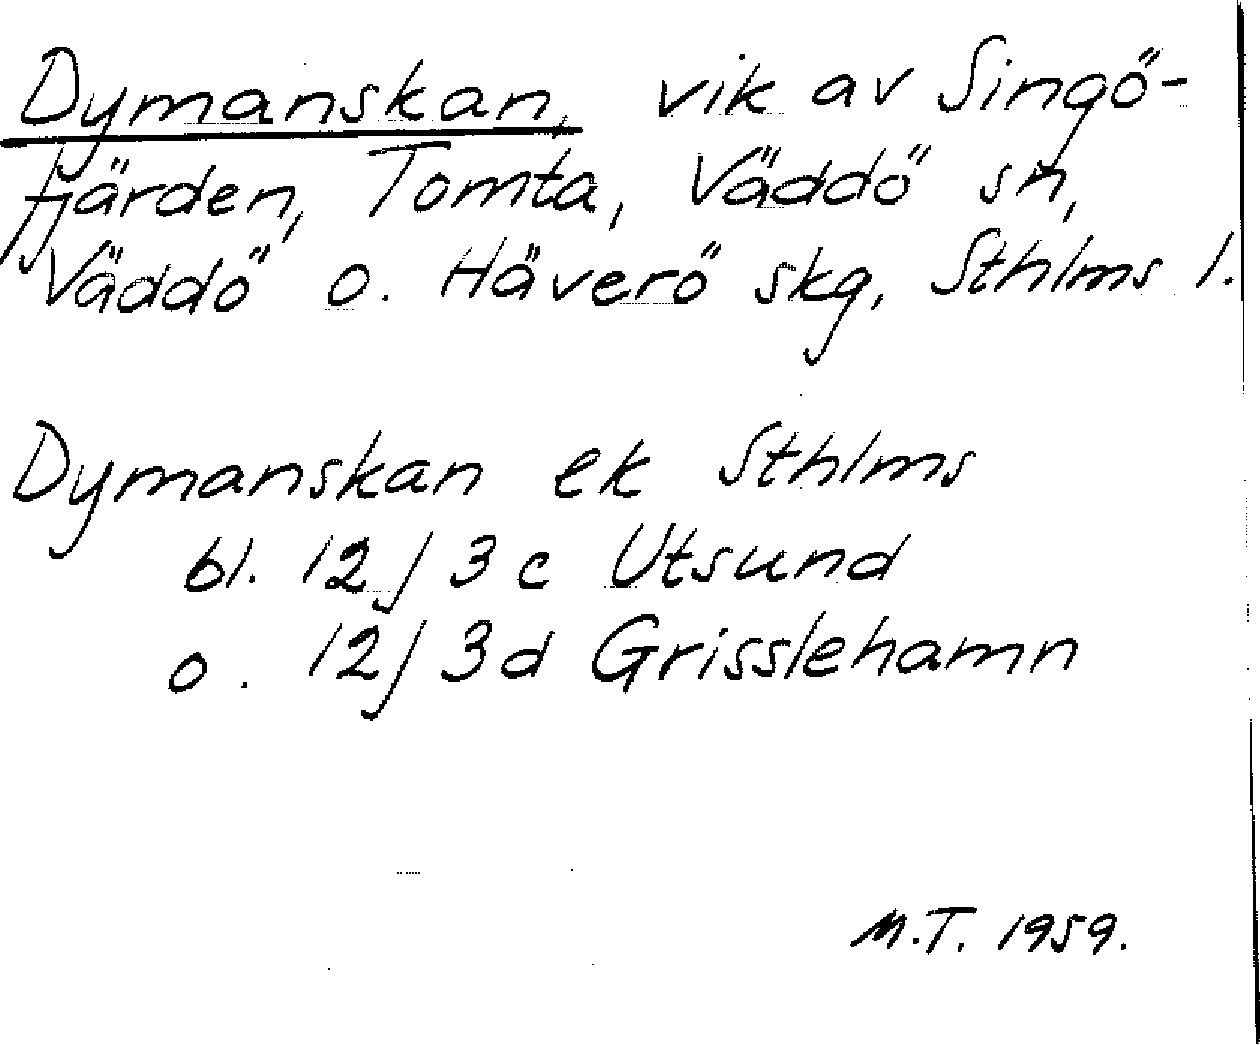 Dymanskan, vik av Singö-
fjärden, Tomta, Väddö sn,
Väddö o. Häverö skg, Sthlms l.
Dymanskan ek Sthlms
bl. 12j 3c Utsund
o. 12j 3d Grisslehamn
M.T. 1959.